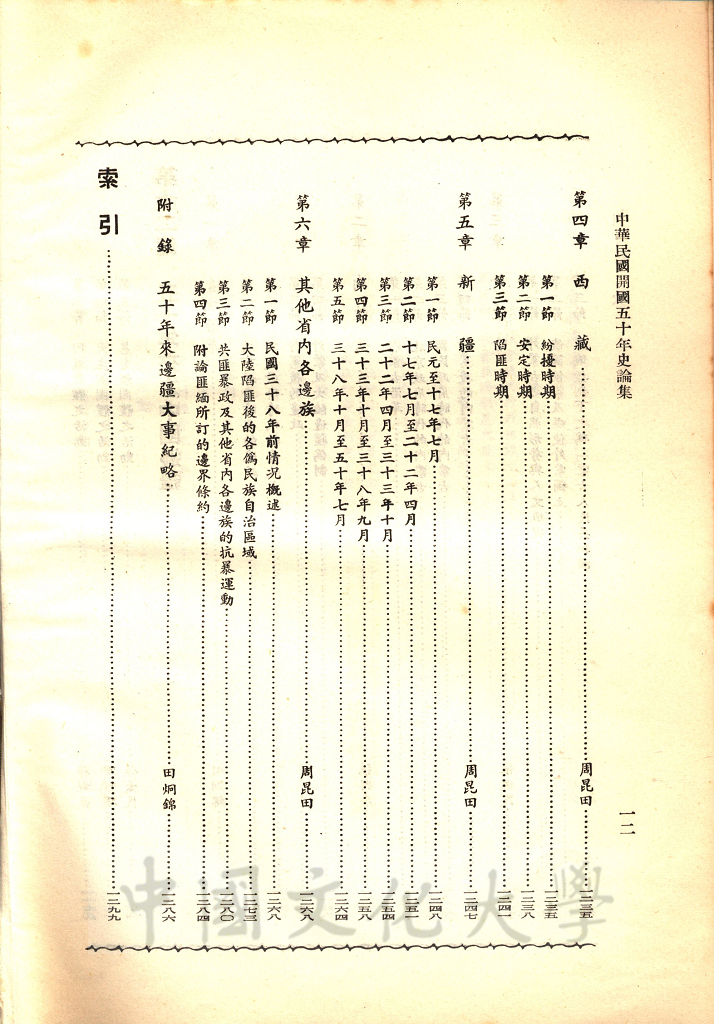 中華民國開國五十年史論集
一二
第四章 西藏……周昆田……一二三五
第一節 紛擾時期……一二三五
第二節 安定時期……一二三八
第三節 陷匪時期……一二四一
第五章 新疆……周昆田……一二四七
第一節 民元至十七年七月……一二四八
第二節 十七年七月至二十二年四月……一二五一
第三節 二十二年四月至三十三年十月……一二五四
第四節 三十三年十月至三十八年九月……一二五八
第五節 三十八年十月至五十年七月……一二六四
第六章 其他省內各邊族……周昆田……一二六八
第一節 民國三十八年前情况概述……一二六八
第二節 大陸陷匪後的各偽民族自治區域……一二七三
第三節 共匪暴政及其他省內各邊族的抗暴運動……一二八〇
第四節 附論匪緬所訂的邊界條約……一二八四
附錄 五十年來邊疆大事紀略……田炯錦……一二八六
索引……一二九九
中国文化大學